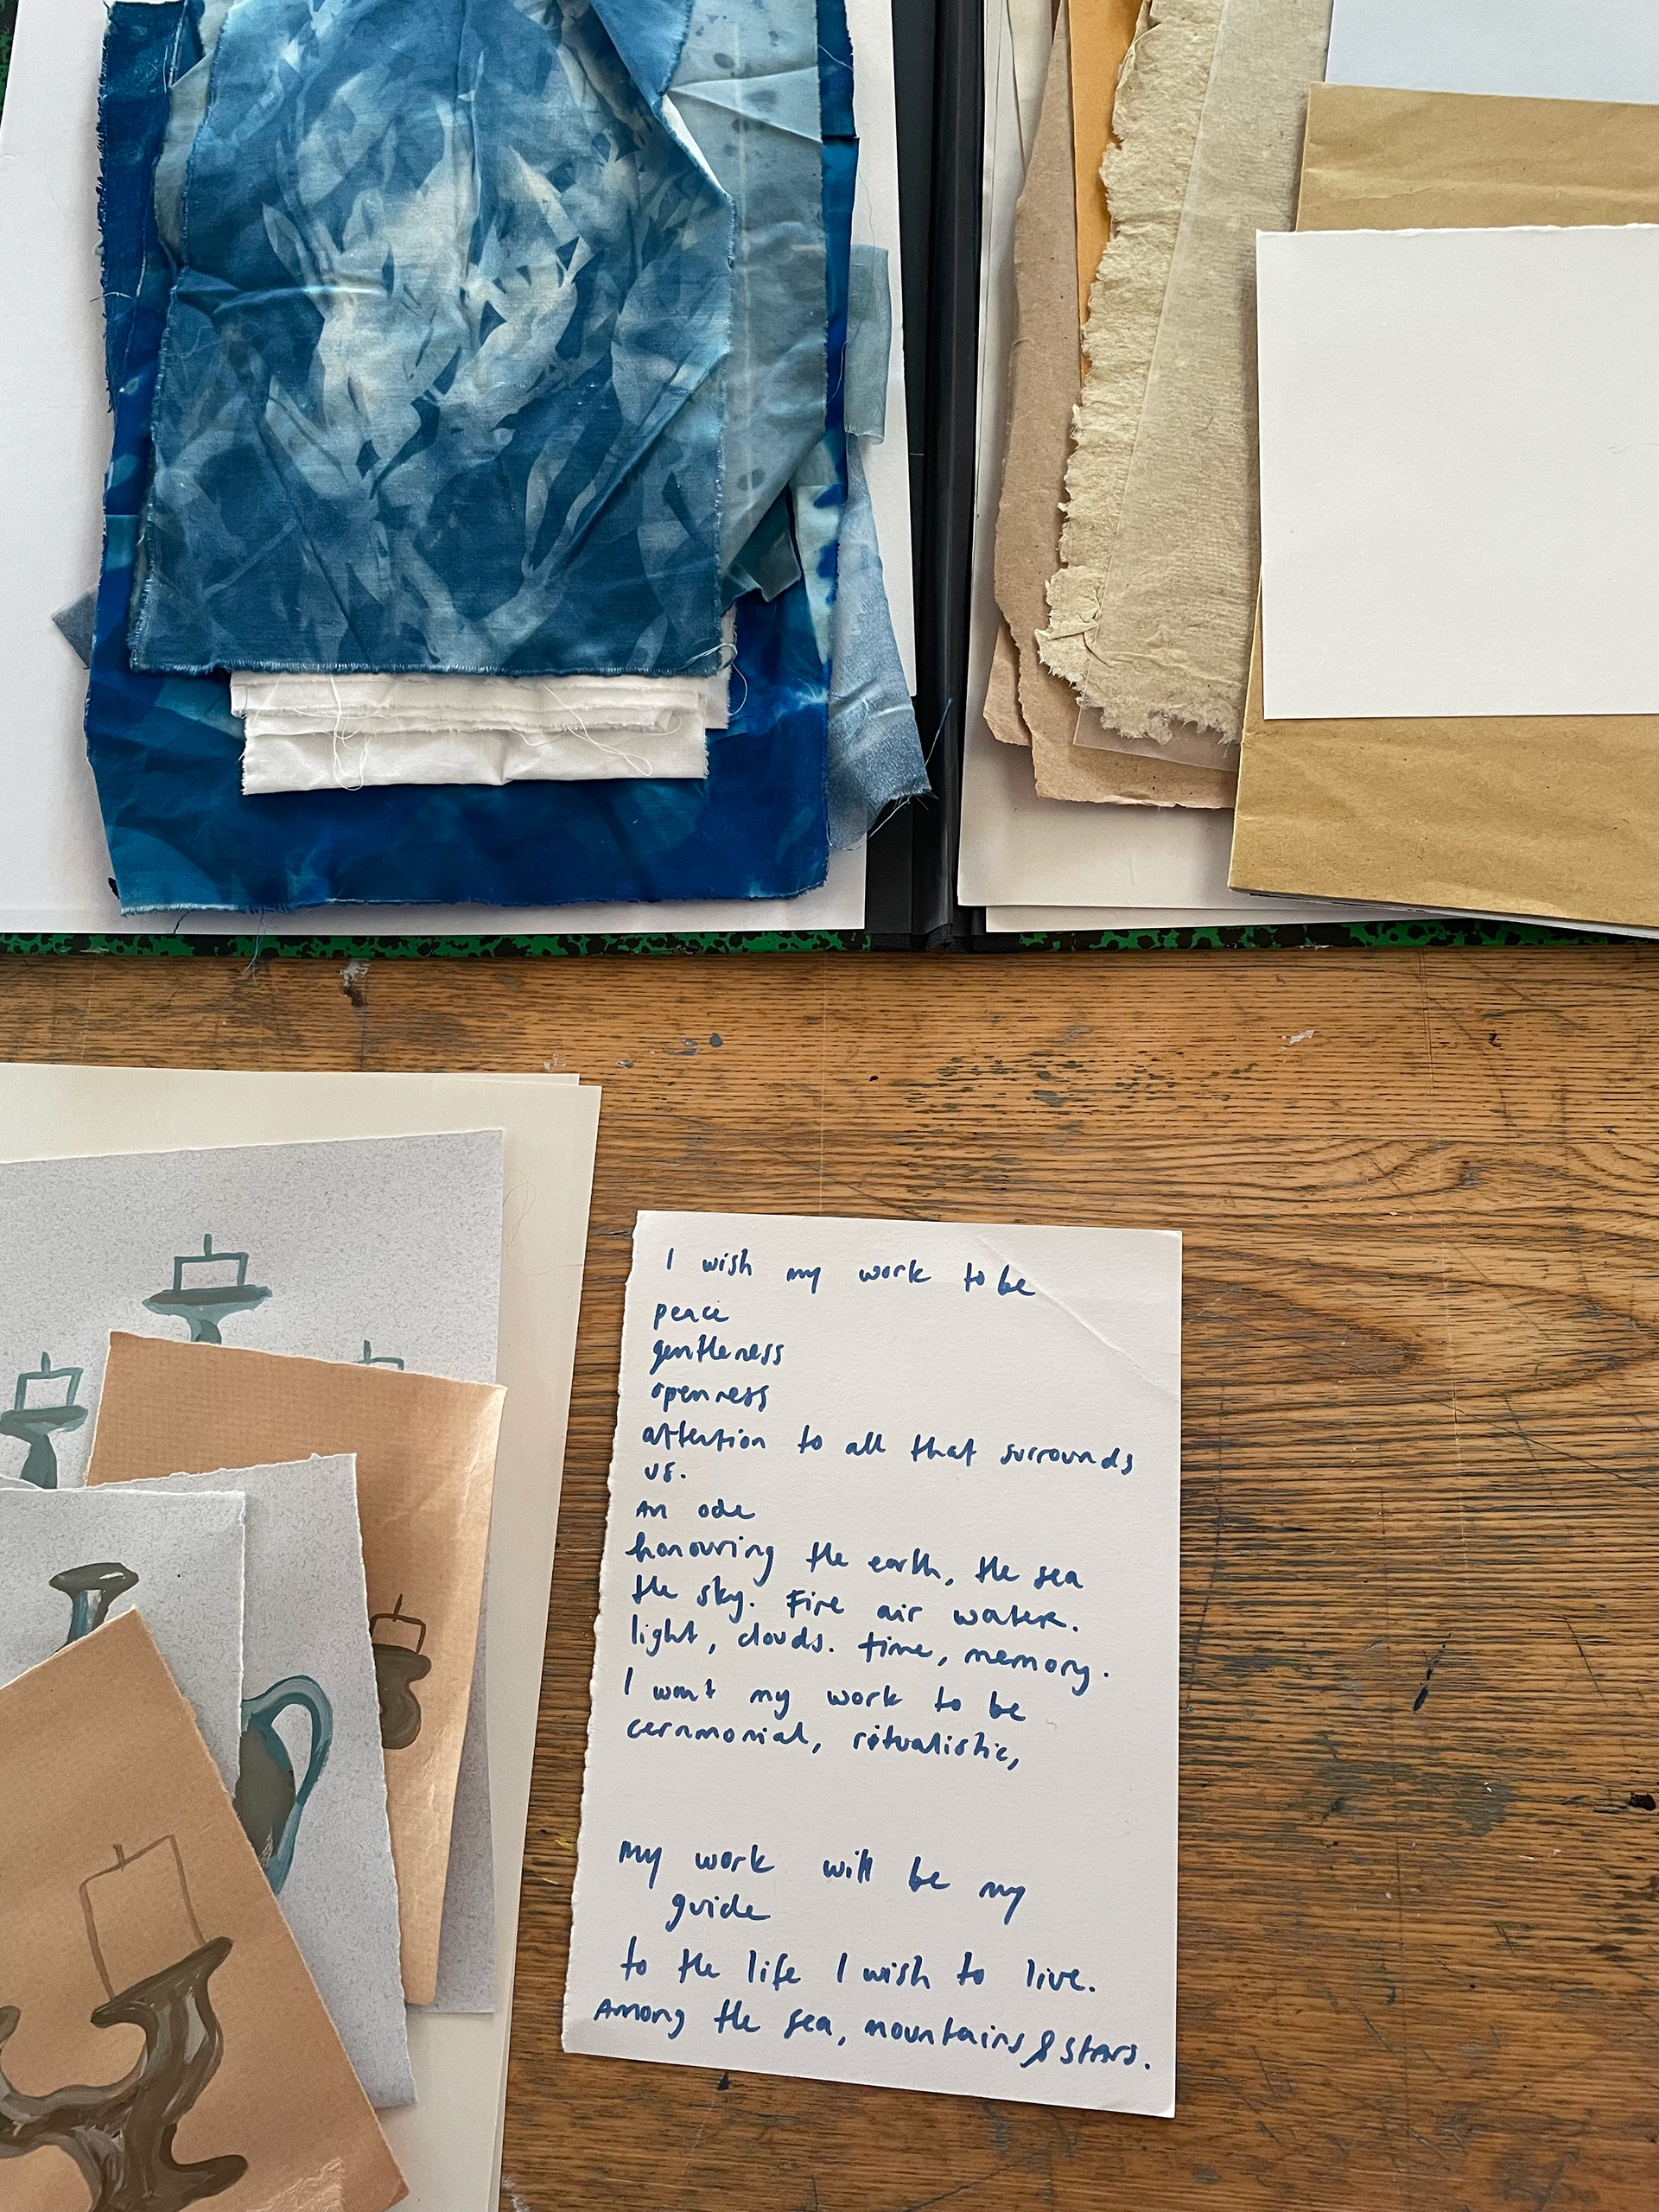 I wish my work to be
peace
gentleness
openness
attention to all that surrounds
us.
An ode
honouring the earth, the sea
the sky. Fire air water.
light, clouds. time, memory.
I want my work to be
ceremonial, ritualistic,
My work will be my
guide
to the life I wish to live.
Among the sea, mountains & stars.